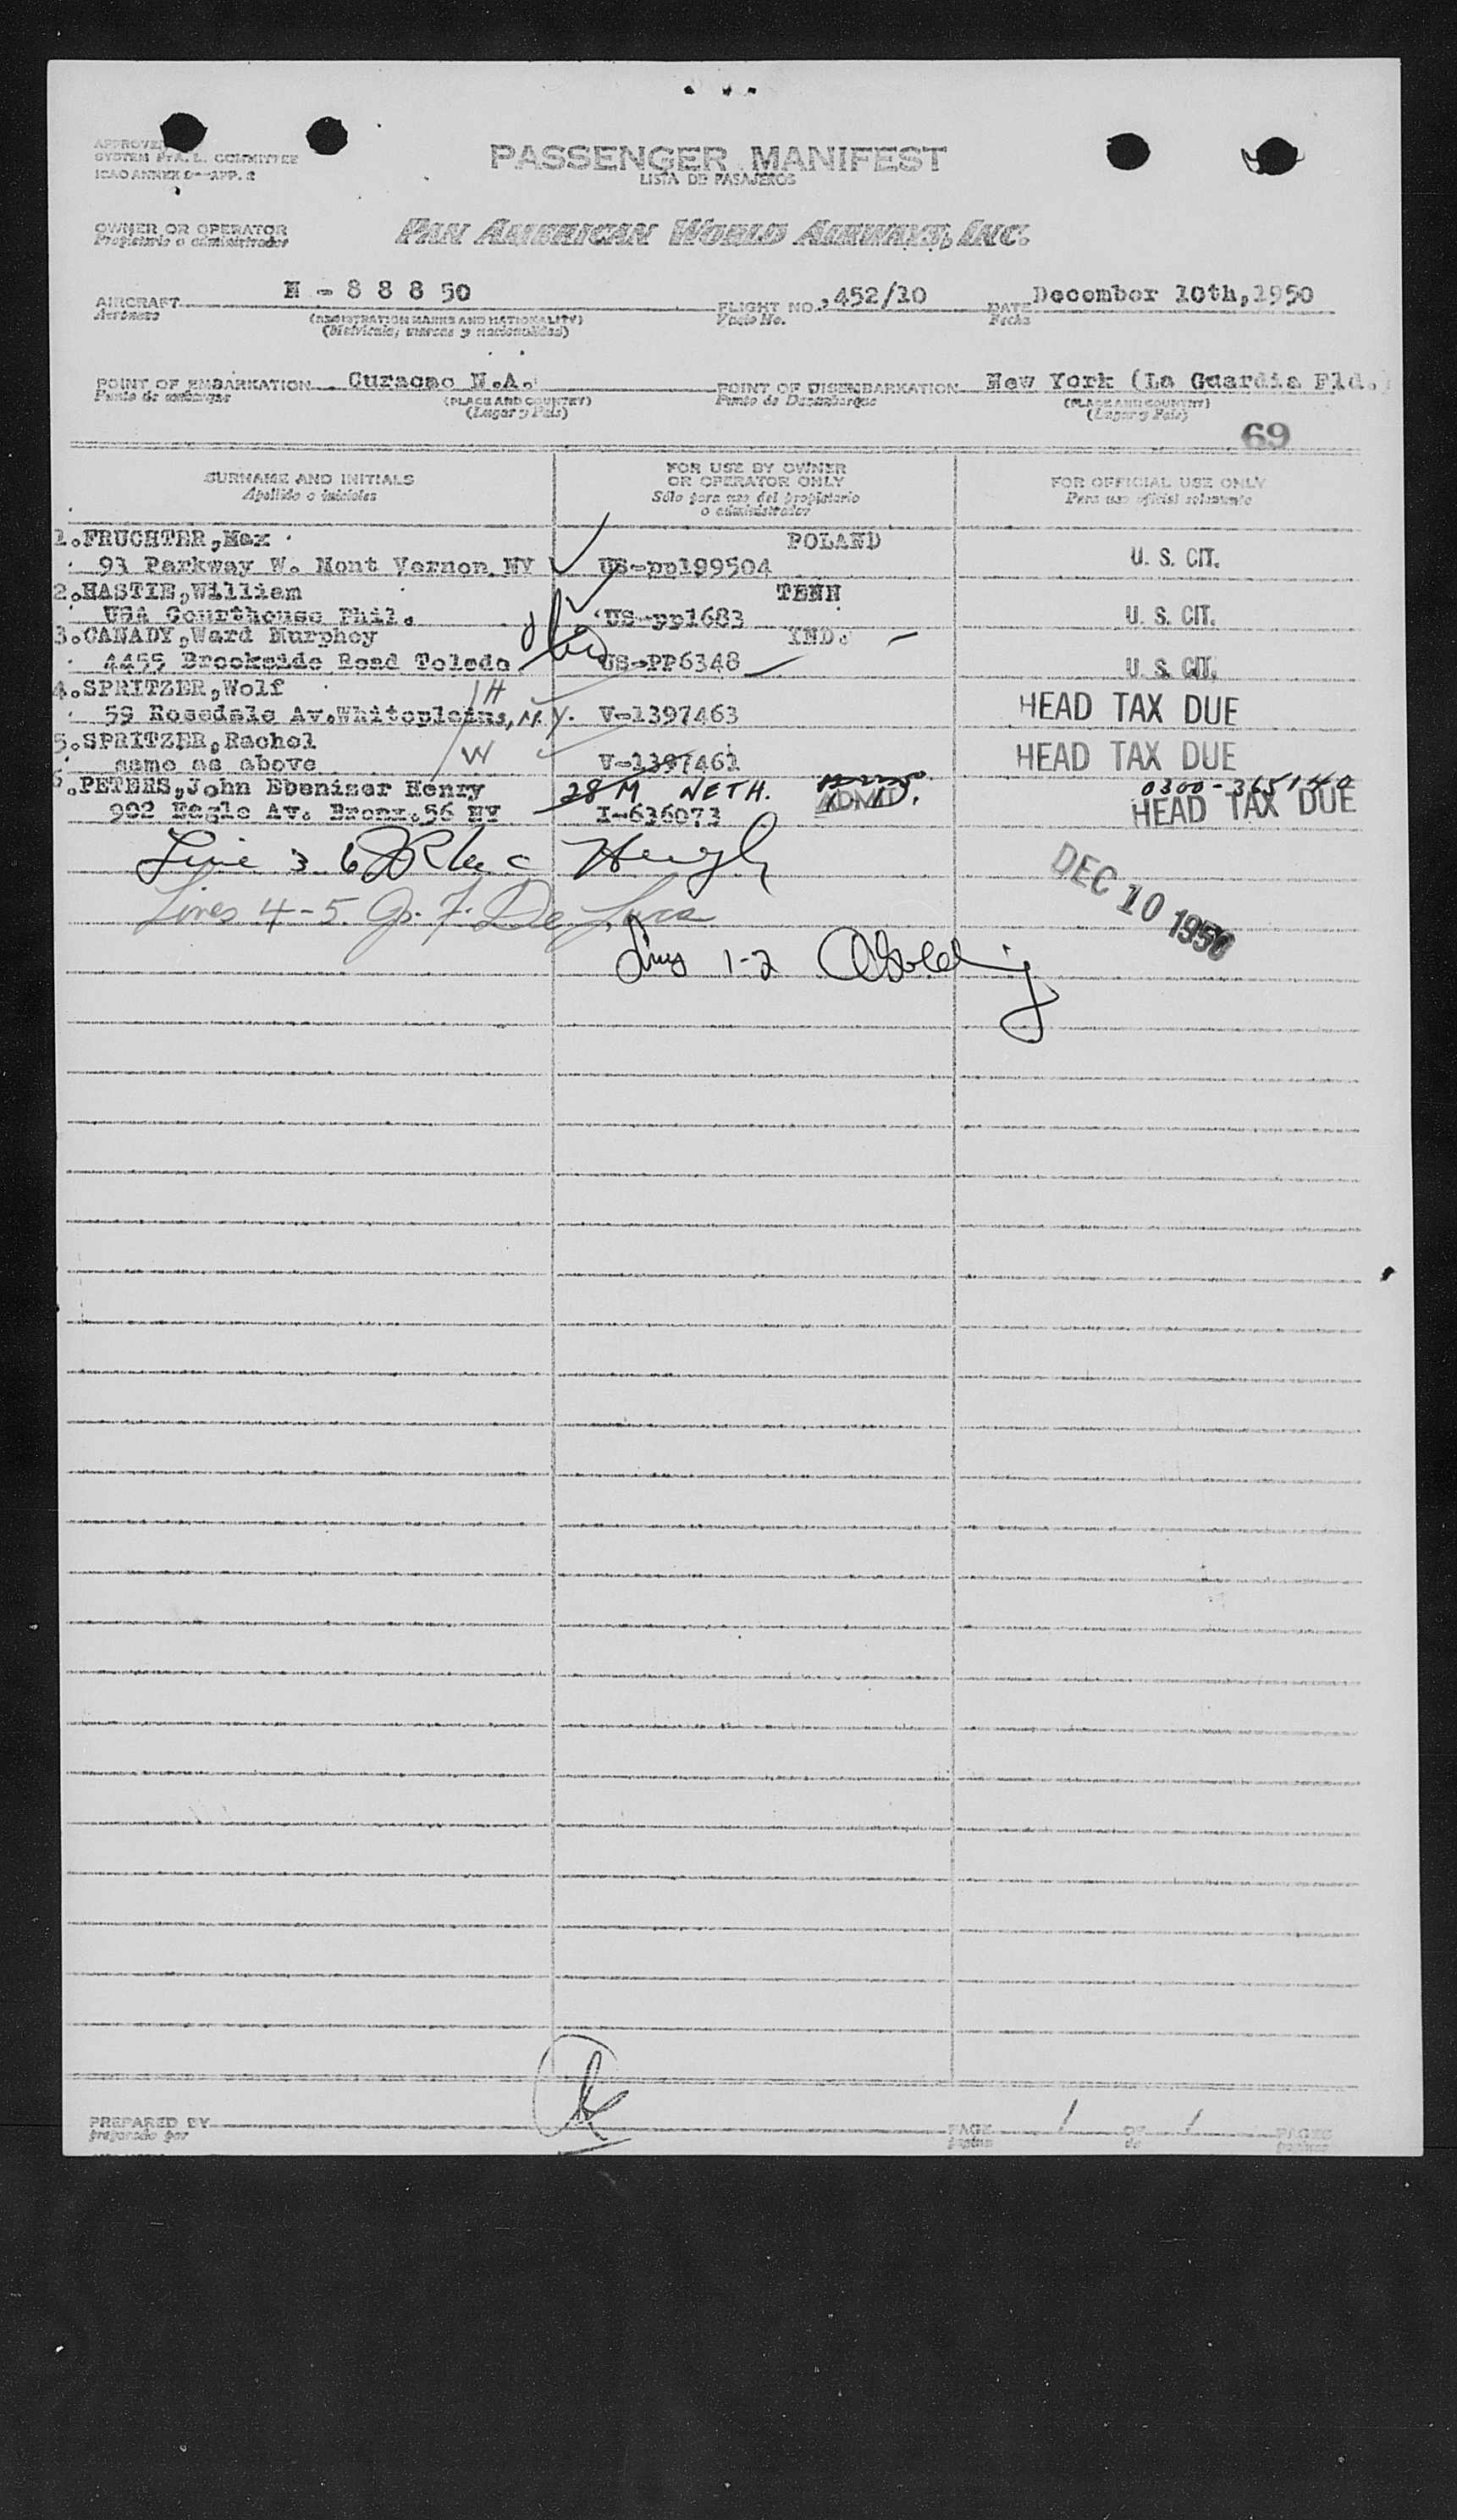 APPROVED
SYSTEM FAL. COMMITTEE
ICAO ANNEX 9-APP. 2
PASSENGER MANIFEST
LISTA DE PASAJEROS
OWNER OR OPERATOR
Propietario o administrador
PAN AMERICAN WORLD AIRWAYS, INC.
AIRCRAFT N - 8 8 8 50 FLIGHT NO. 452/10 DATE December 10th,1950
Aeronave (REGISTRATION MARKS AND NATIONALITY) Vuelo No. Fecha
(Matrícula, marcas y nacionalidad)
POINT OF EMBARKATION Curacao N.A. POINT OF DISEMBARKATION New York (La Guardia Fld.)
Punto de embarque (PLACE AND COUNTRY) Punto de Desembarque (PLACE AND COUNTRY)
(Lugar y País) (Lugar y País)
69
SURNAME AND INITIALS FOR USE BY OWNER OR OPERATOR ONLY FOR OFFICIAL USE ONLY
Apellido o iniciales Sólo para uso del propietario o administrador Para uso oficial solamente
1.FRUCHTER,Max POLAND
93 Parkway W. Mont Vernon NY US-pp199504 U. S. CIT.
2.HASTIE,William TENN
USA Courthouse Phil. US-pp1683 U. S. CIT.
3.CANADY,Ward Murphey IND.
4455 Brookside Road Toledo US-PP6348 U. S. CIT.
4.SPRITZER,Wolf H
59 Rosedale Av.Whiteplains, N.Y. V-1397463 HEAD TAX DUE
5.SPRITZER,Rachel
same as above W V-1397461 HEAD TAX DUE
6.PETERS,John Ebeniser Henry 28 M NETH. ADMTD. 0300-365140
902 Eagle Av. Bronx.56 NY I-636073 HEAD TAX DUE
Line 3 6
Lines 4-5 De Luca
DEC 10 1950
Lines 1-2
PREPARED BY PAGE 1 OF 1 PAGES
preparado por página de páginas